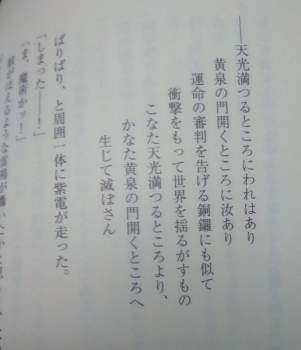 ――天光満つるところにわれはあり
黄泉の門開くところに汝あり
運命の審判を告げる銅鑼にも似て
衝撃をもって世界を揺るがすもの
こなた天光満つるところより、
かなた黄泉の門開くところへ
生じて滅ぼさん
ばりばり、と周囲一体に紫電が走った。
「しまった――！」
「ま、魔術かッ！」